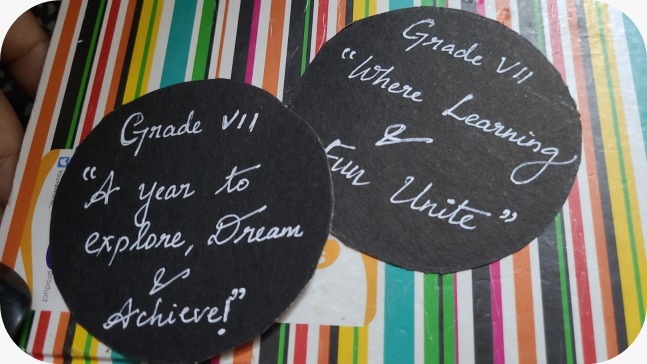 Grade VII
"A year to
explore, Dream
&
Achieve!"
Grade VII
"Where Learning
&
Fun Unite"
product